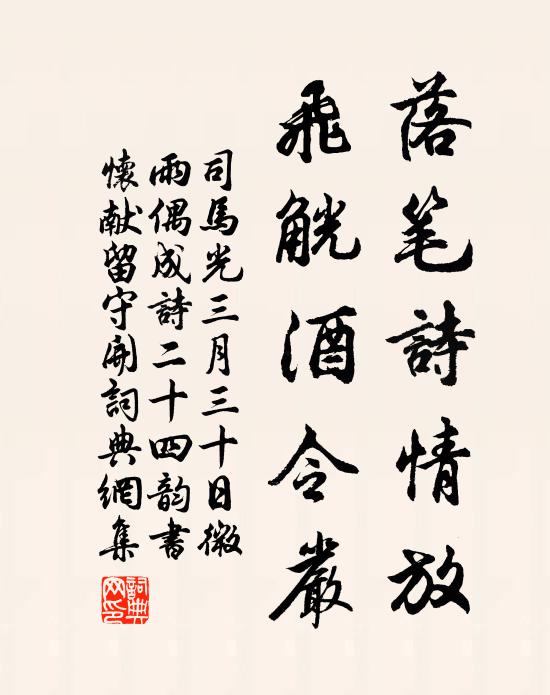 落笔詩情放
飛觥酒令嚴
司馬光三月三十日微
雨偶成詩二十四韵書
懷献留守開詞典網集
詞典
网印